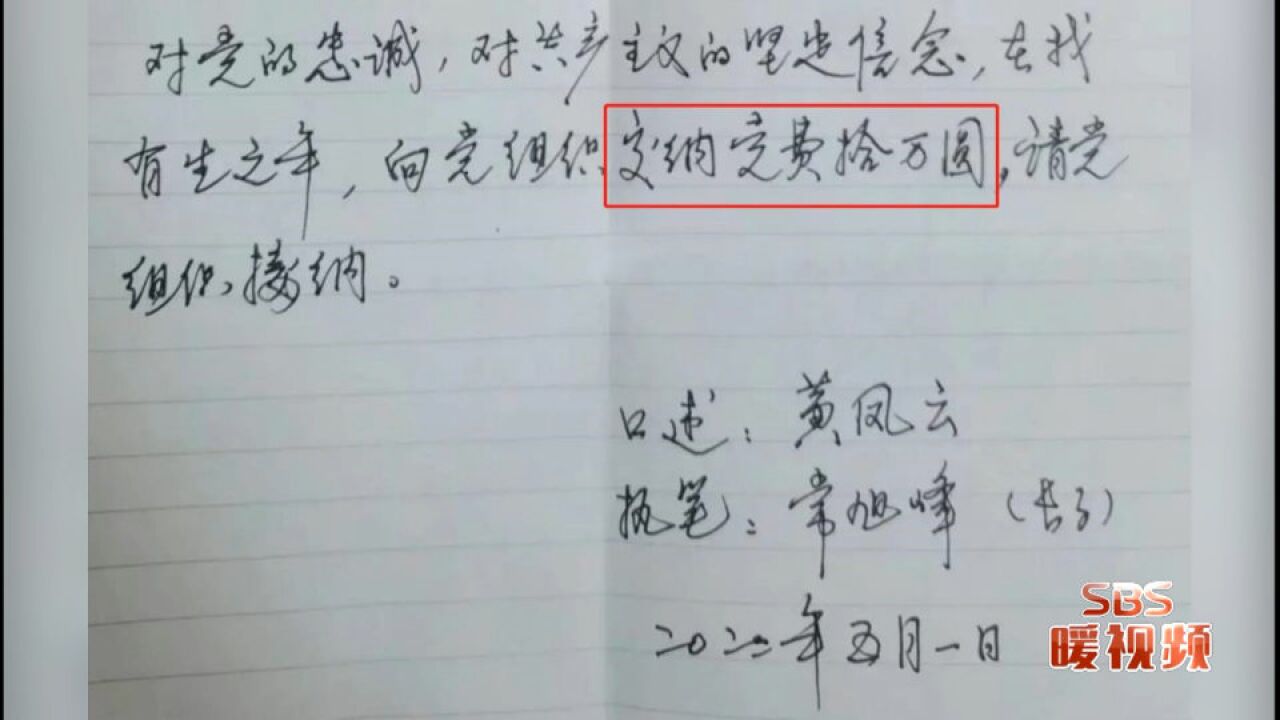 对党的忠诚，对共产主义的坚忠信念，在我
有生之年，向党组织交纳党费拾万圆，请党
组织接纳。
口述：黄凤云
执笔：常旭峰（长子）
二〇二二年五月一日
SBS
暖视频